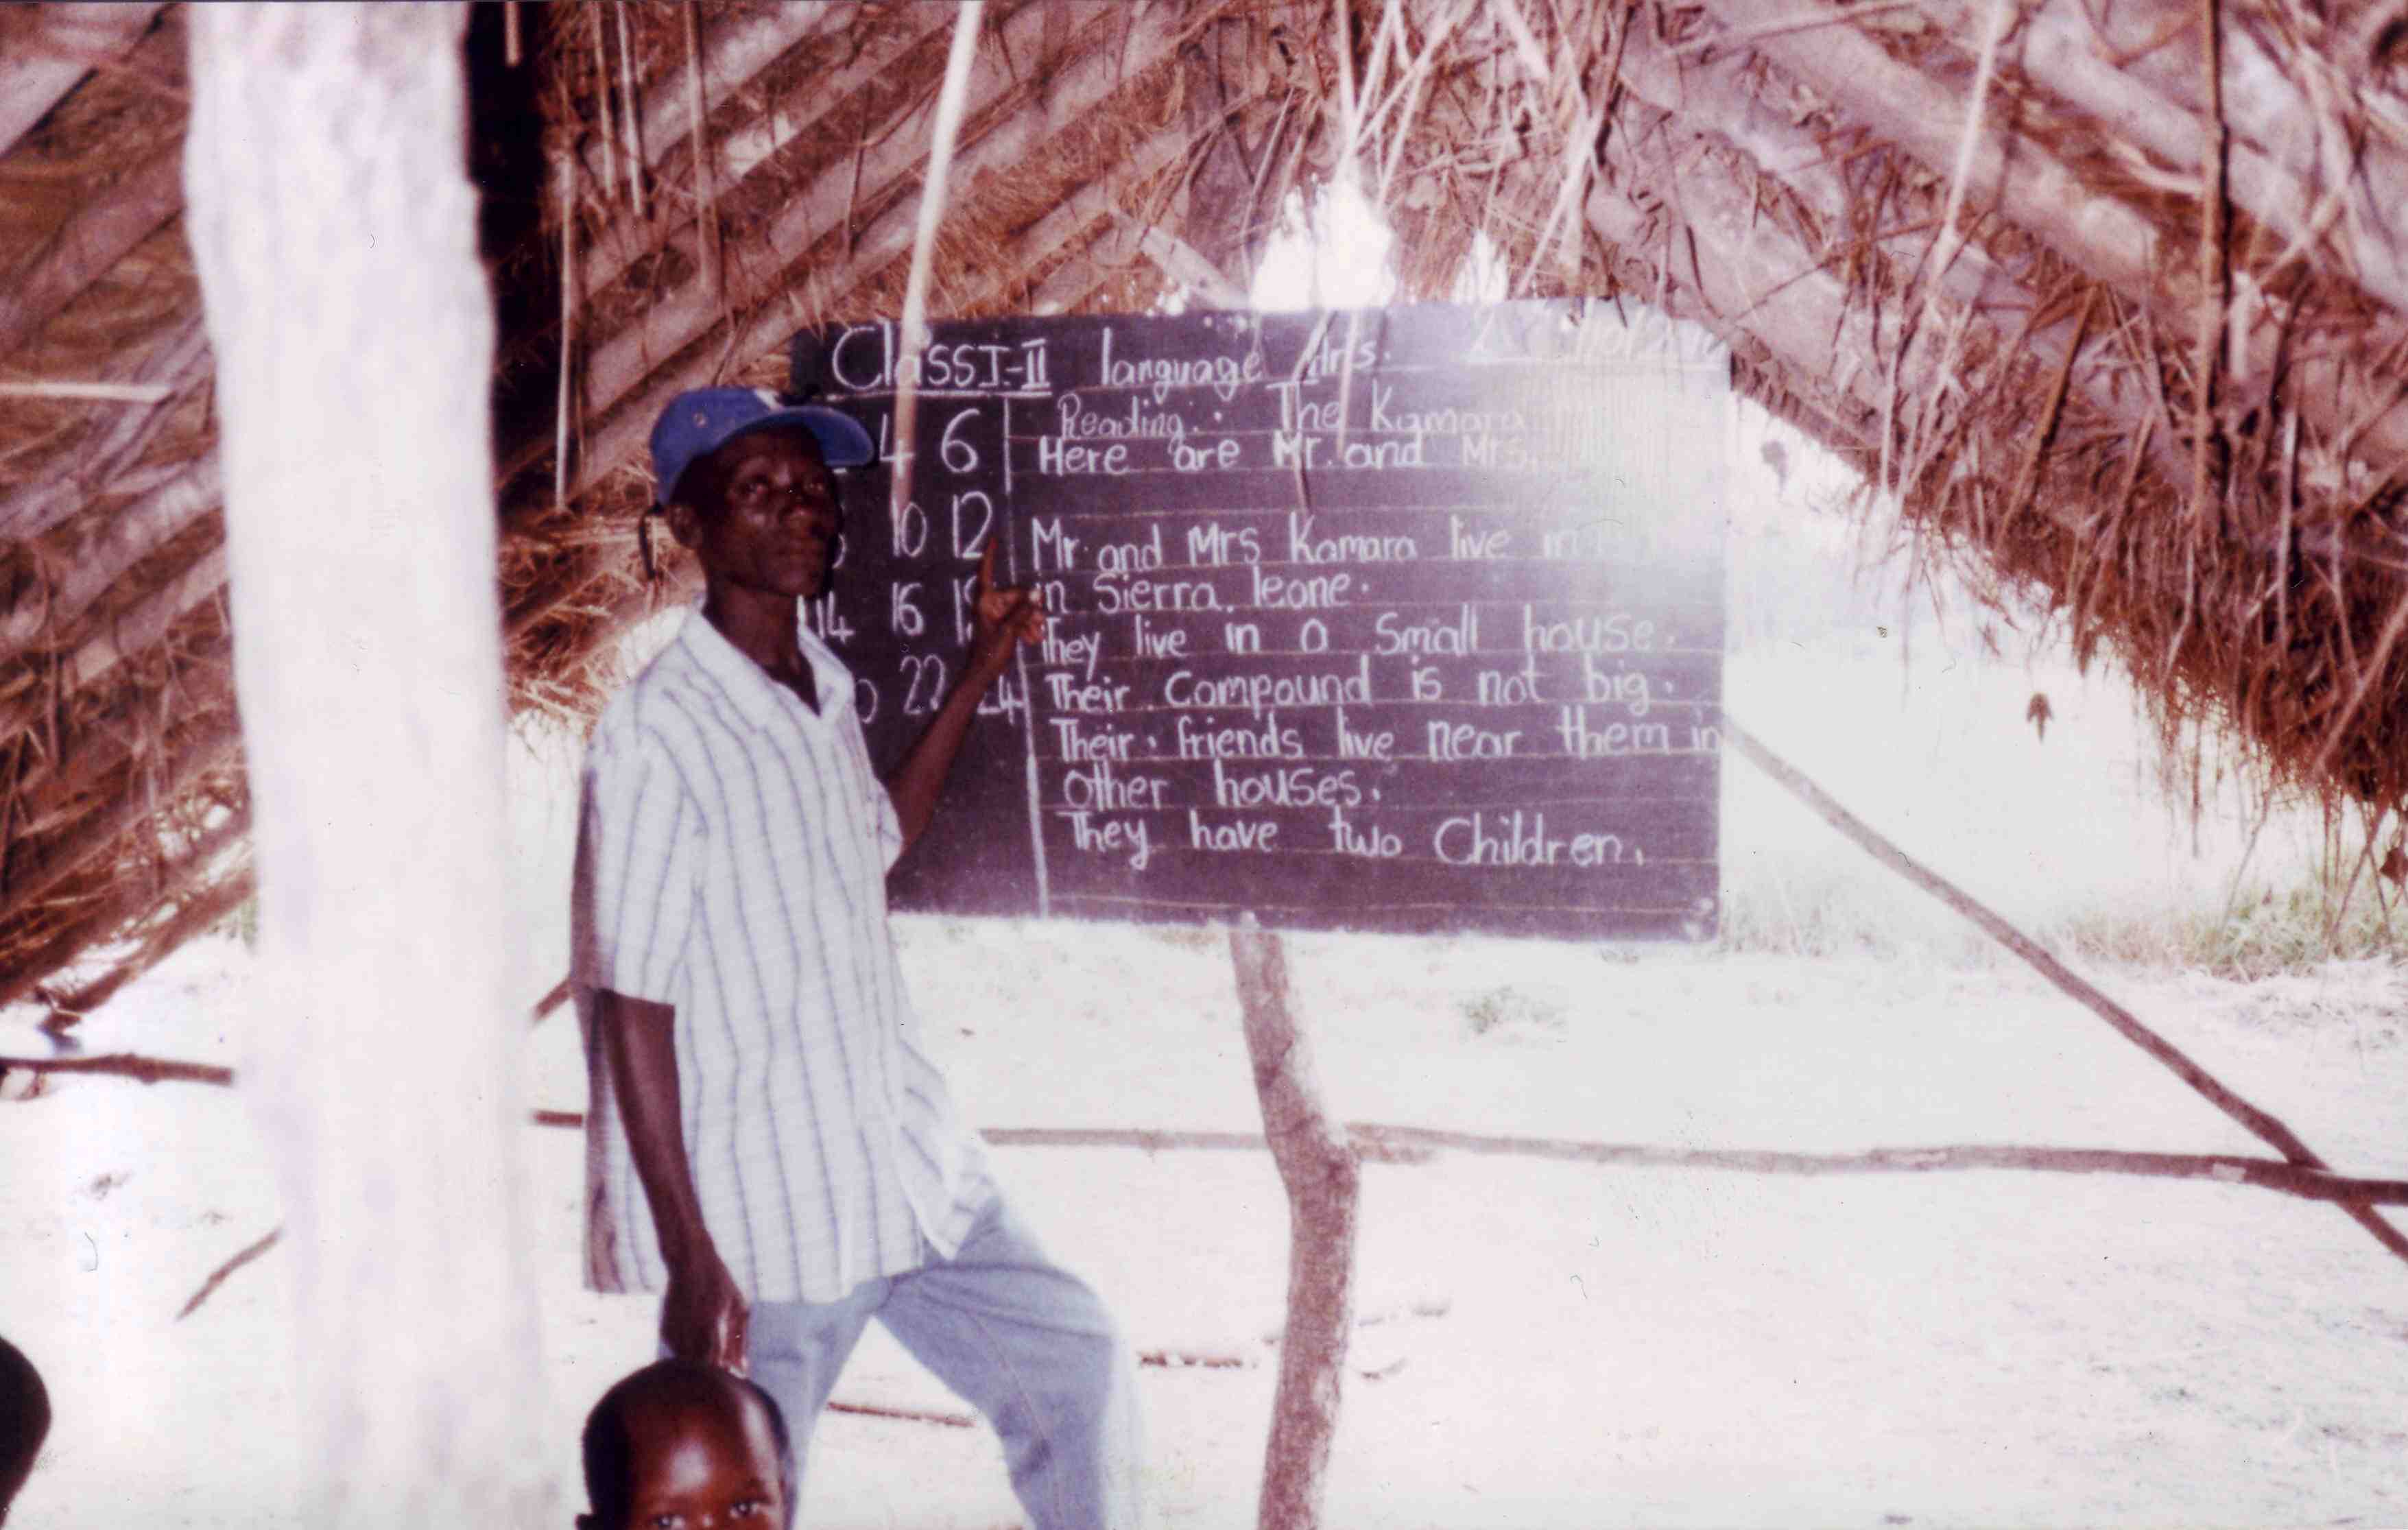 Class I-II language Arts.
4 6
10 12
14 16
22 24
Reading: The Kamara
Here are Mr. and Mrs.
Mr. and Mrs Kamara live in
in Sierra leone.
They live in a Small house.
Their Compound is not big.
Their friends live near them in
other houses.
They have two Children.